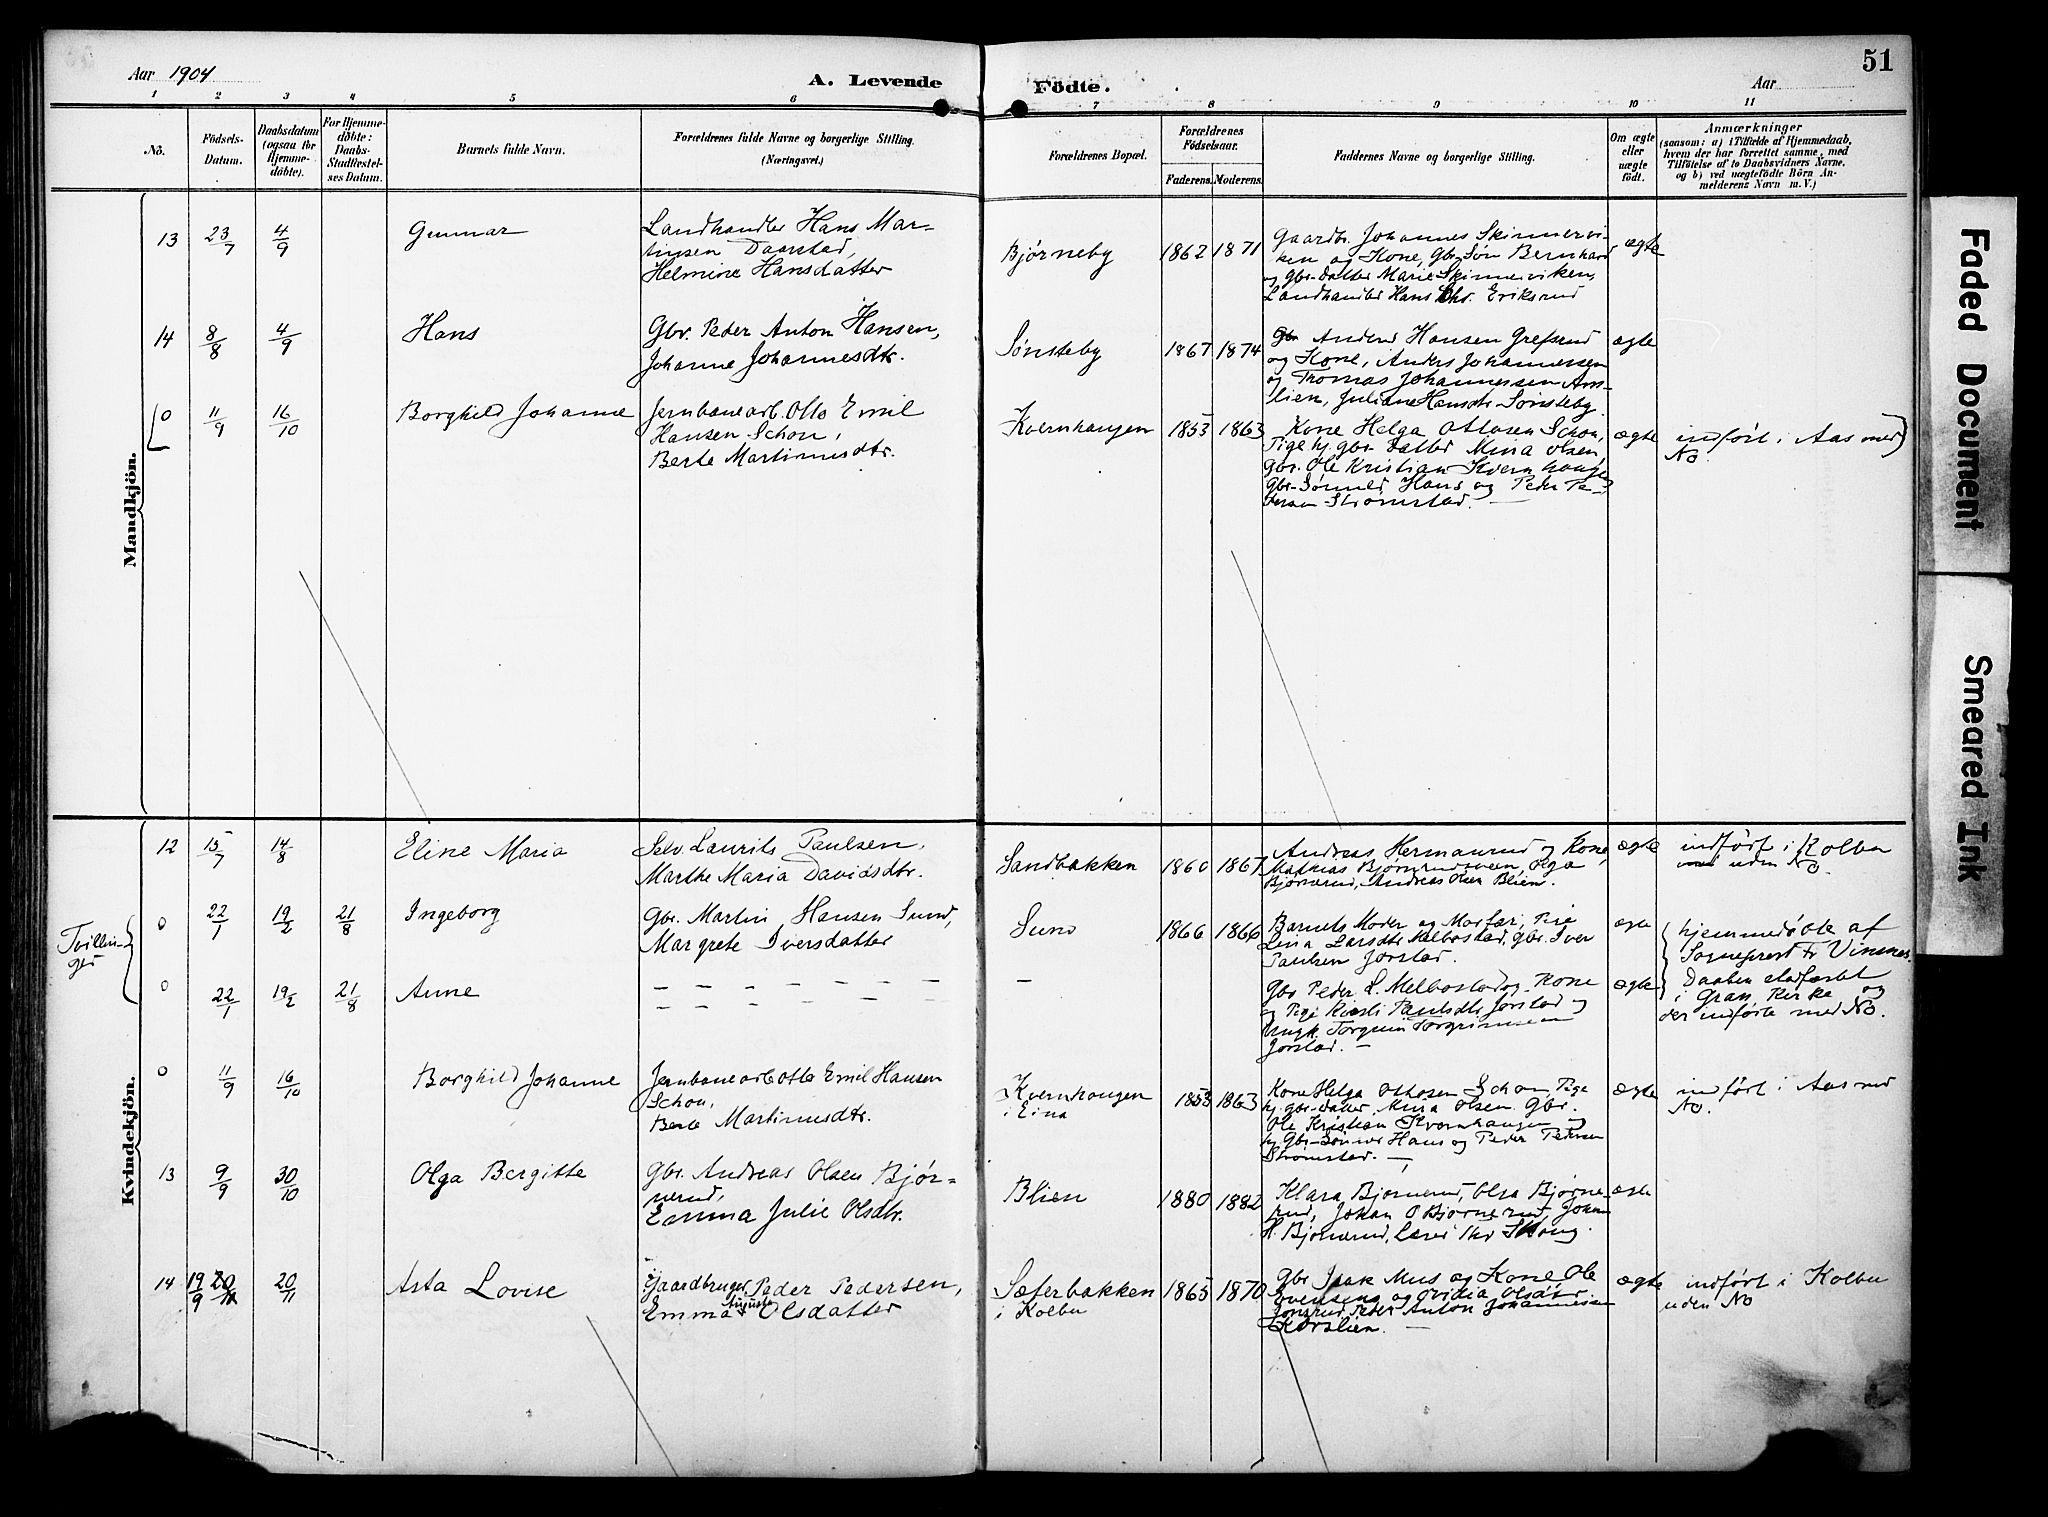 51
Aar 1904
A. Levende
Födte.
Aar
1 2 3 4 5 6 7 8 9 10 11
No.
Födsels-
Datum.
Daabsdatum
(ogsaa for
Hjemme-
döbte).
For Hjemme-
döbte:
Daabs-
Stadfæstel-
ses Datum.
Barnets fulde Navn.
Forældrenes fulde Navne og borgerlige Stilling.
(Næringsvei.)
Forældrenes Bopæl.
Forældrenes
Födselsaar.
Faderens. Moderens.
Faddernes Navne og borgerlige Stilling.
Om ægte
eller
uægte
födt.
Anmærkninger
(saasom: a) i Tilfælde af Hjemmedaab,
hvem der har forrettet samme, med
Tilföielse af to Daabsvidners Navne,
og b) ved uægtefödte Börn An-
melderens Navn m. V.)
Mandkjön.
13 23/7 4/9 Gunnar
Landhandler Hans Mar-
tinsen Daarstad,
Helmine Hansdatter
Bjørneby 1862 1871
Gaardbr. Johannes Skinnervi-
ken og Kone, Gbr. Søn Bernhard
og Gbr. datter Marie Skinnerviken,
Landhandler Hans Chr. Eriksrud
ægte
14 8/8 4/9 Hans
Gbr. Peder Anton Hansen,
Johanne Johannesdtr.
Sønsteby 1867 1874
Gbr Anders Hansen Grefsrud
og Kone, Anders Johannessen
og Thomas Johannessen Ams-
lien, Juliane Hansdtr Sønsteby.
ægte
0 11/9 16/10 Borghild Johanne
Jernbanearb. Otto Emil
Hansen Schou,
Berte Martinusdtr.
Kvernhaugen 1853 1863
Kone Helga Ottosen Schou,
Pige hj. gbr. datter Mina Olsen,
gbr. Ole Kristian Kvernhaugen
Gbr-Sønner Hans og Peder Pe-
dersen Strømstad.
ægte
indført i Aas med
No
Kvindekjön.
12 15/7 14/8 Eline Maria
Selv. Laurits Paulsen,
Marthe Maria Davidsdtr.
Sandbakken 1860 1867
Andreas Hermanrud og Kone,
Mathias Bjørnerudsveen, Olga
Bjørnerud, Andreas Olsen Blien.
ægte
indført i Kolbu
uden No.
Tvillin-
ger
0 22/1 19/2 21/8 Ingeborg
Gbr. Martin Hansen Sund,
Margrete Iversdatter
Sund 1866 1866
Barnets Moder og Morfar, Pige
Lina Larsdtr Melbostad, gbr. Iver
Paulsen Jorstad.
ægte
hjemmedøbte af
Sogneprest Fr Vinsnes.
Daaben stadfæstet
i Gran Kirke og
der indførte med No.
0 22/1 19/2 21/8 Anne
Gbr. Peder L. Melbostad og Kone
og Pige Kirsti Paulsdtr Jorstad og
Ungk. Torgrim Torgrimsen
Jorstad. —
ægte
0 11/9 16/10 Borghild Johanne
Jernbanearb Otto Emil Hansen
Schou,
Berte Martinusdtr.
Kvernhaugen
i Eina
1853 1863
Kone Helga Ottosen Schou, Pige
hj. gbr-datter, Mina Olsen. Gbr.
Ole Kristian Kvernhaugen og
hj. Gbr-Sønner Hans og Peder Pedersen
Strømstad. —
ægte
indført i Aas med
No.
13 9/9 30/10 Olga Bergitte
Gbr. Andreas Olsen Bjør-
nerud,
Emma Julie Olsdtr.
Blien 1880 1882
Klara Bjørnerud, Olga Bjørne-
rud, Johan O Bjørnerud, Johan
H. Bjørnerud, Lærer Thr Skong.
ægte
14 19/9 20/11 Asta Lovise
Gaardbruger Peder Pedersen,
Emma Auguste Olsdatter
Sæterbakken
i Kolbu
1865 1870
Gbr. Isak Mus og Kone Ole
Evensens og Ovidia Olsdtr
Jonsrud, Peder Anton Johannessen
Korslien. —
ægte
indført i Kolbu
uden No
Faded Document
Smeared Ink